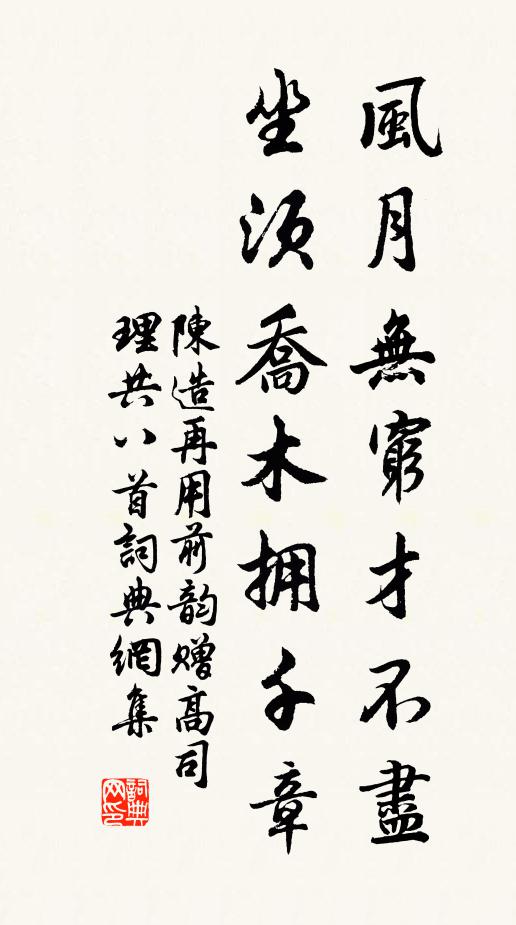 風月無窮才不盡
坐須喬木拥千章
陳造再用前韵赠高司
理共八首詞典網集
詞典网印